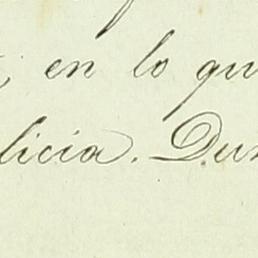 , en lo qu
licia. Du